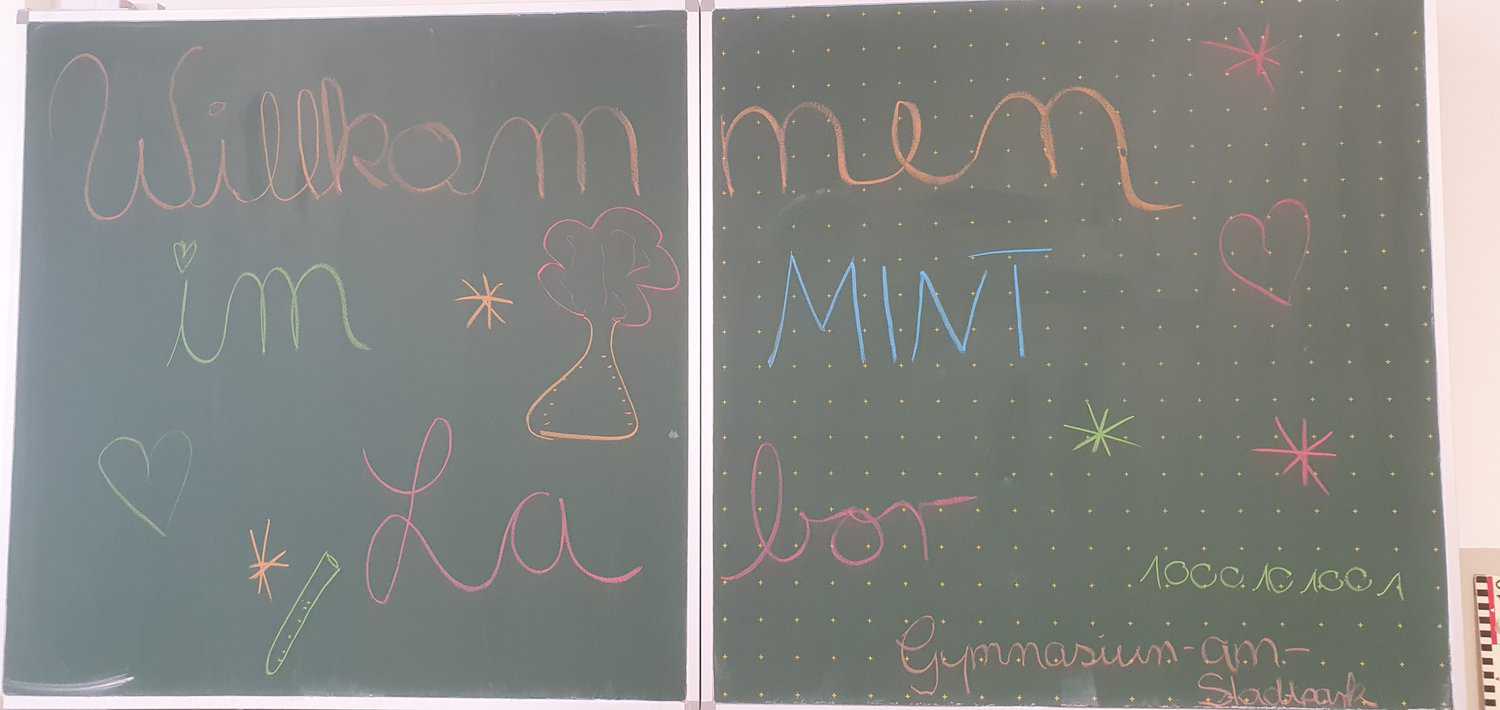 Willkommen
im MINT
Labor
10000101001
Gymnasium-am-
Stadtpark